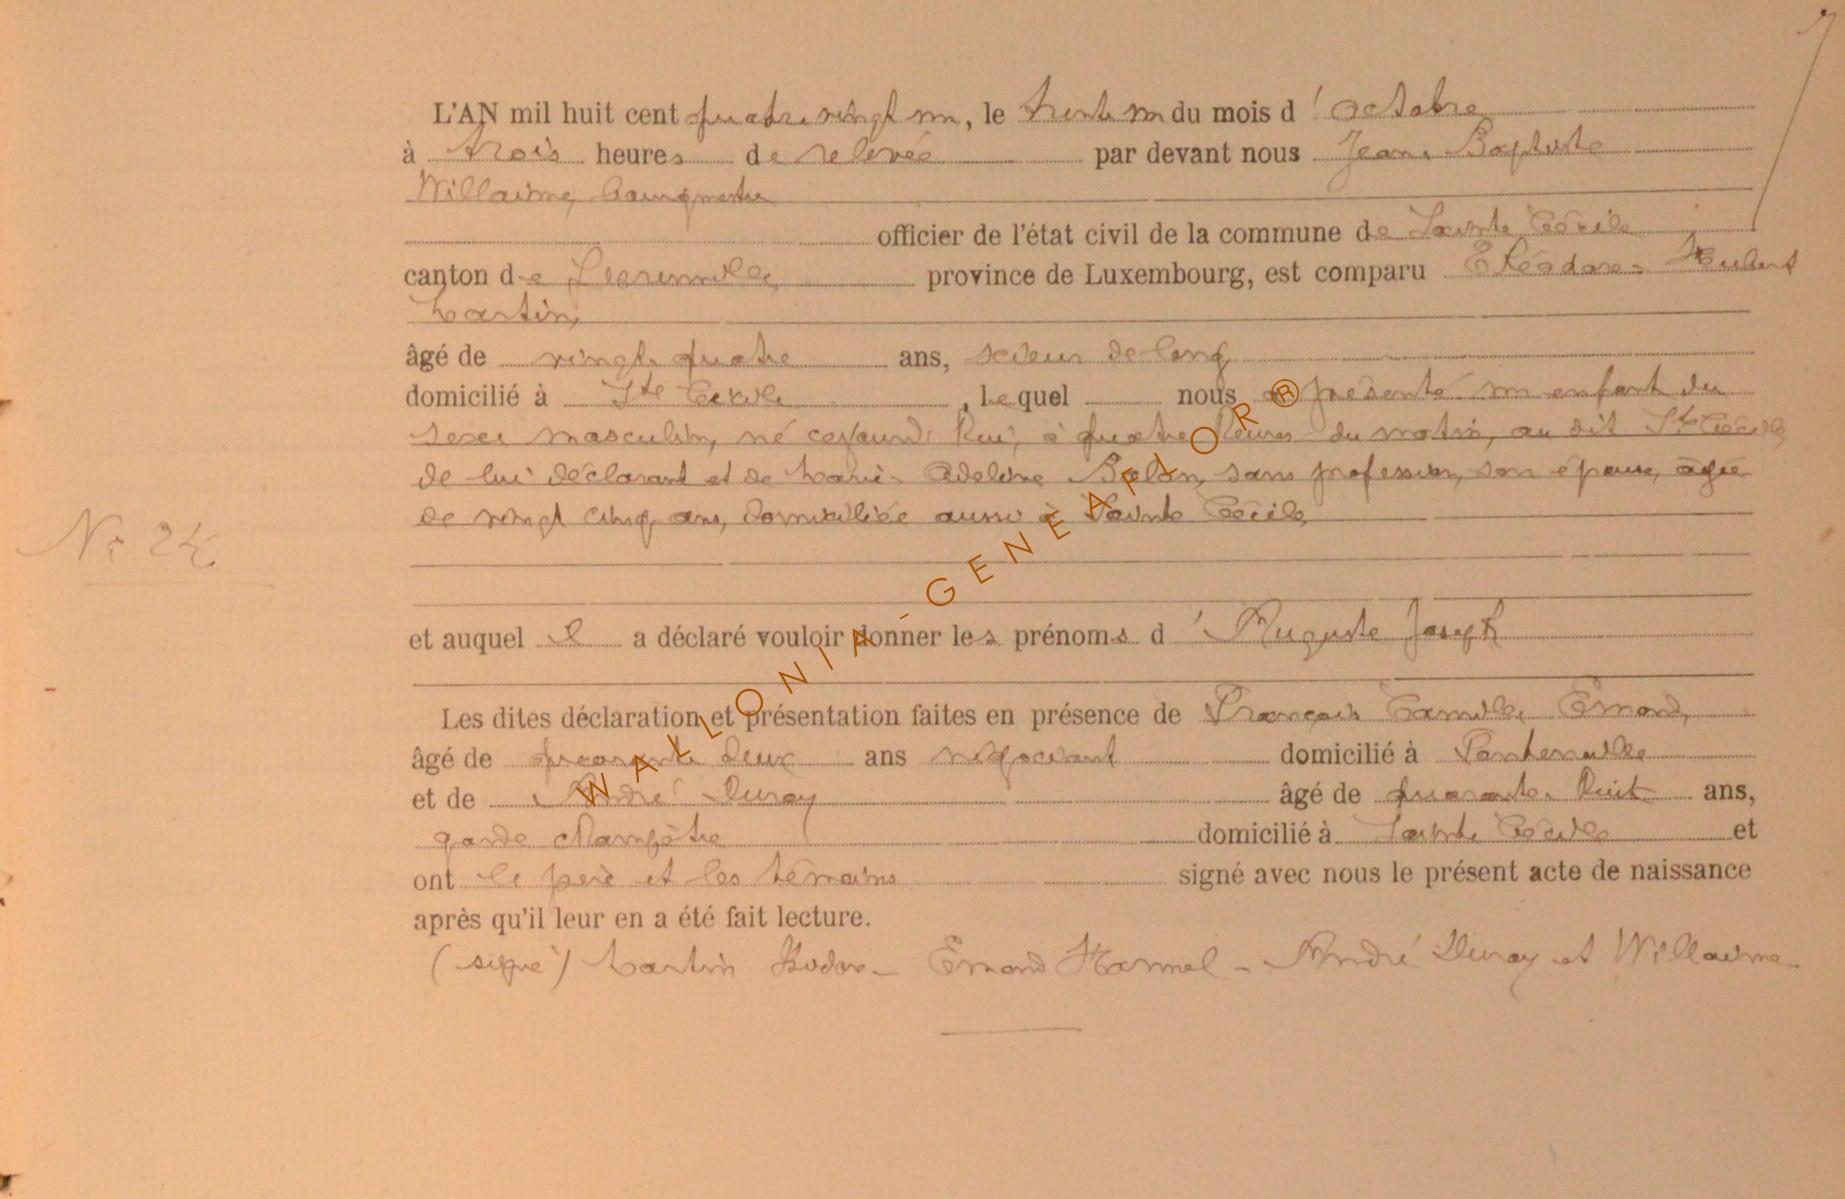 L'AN mil huit cent quatre vingt un, le trente un du mois d'octobre
à trois heures de relevée par devant nous Jean Baptiste
Willaime, bourgmestre
officier de l'état civil de la commune de Sainte Cécile
canton de province de Luxembourg, est comparu Théodore Hubert
Martin,
âgé de vingt quatre ans, scieur de long
domicilié à Ste Cécile, lequel nous a présenté un enfant du
sexe masculin, né cejourd'hui, à quatre heures du matin, au dit Ste Cécile
de lui déclarant et de Marie Adeline sans profession, son épouse, âgée
de vingt cinq ans, domiciliée aussi à Sainte Cécile
No 24
et auquel il a déclaré vouloir donner les prénoms d'Auguste Joseph
Les dites déclaration et présentation faites en présence de François Camille Emond,
âgé de quarante deux ans négociant domicilié à
et de André Duroy âgé de quarante huit ans,
garde champêtre domicilié à Sainte Cécile et
ont le père et les témoins signé avec nous le présent acte de naissance
après qu'il leur en a été fait lecture.
(signé) Martin Emond André Duroy et Willaime
WALLONIA-GENEAFLOR®